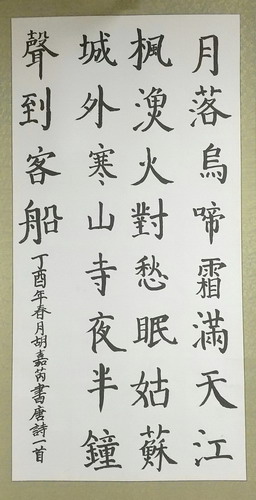 月落烏啼霜滿天江
楓漁火對愁眠姑蘇
城外寒山寺夜半鐘
聲到客船
丁酉年春月胡嘉芮書唐詩一首